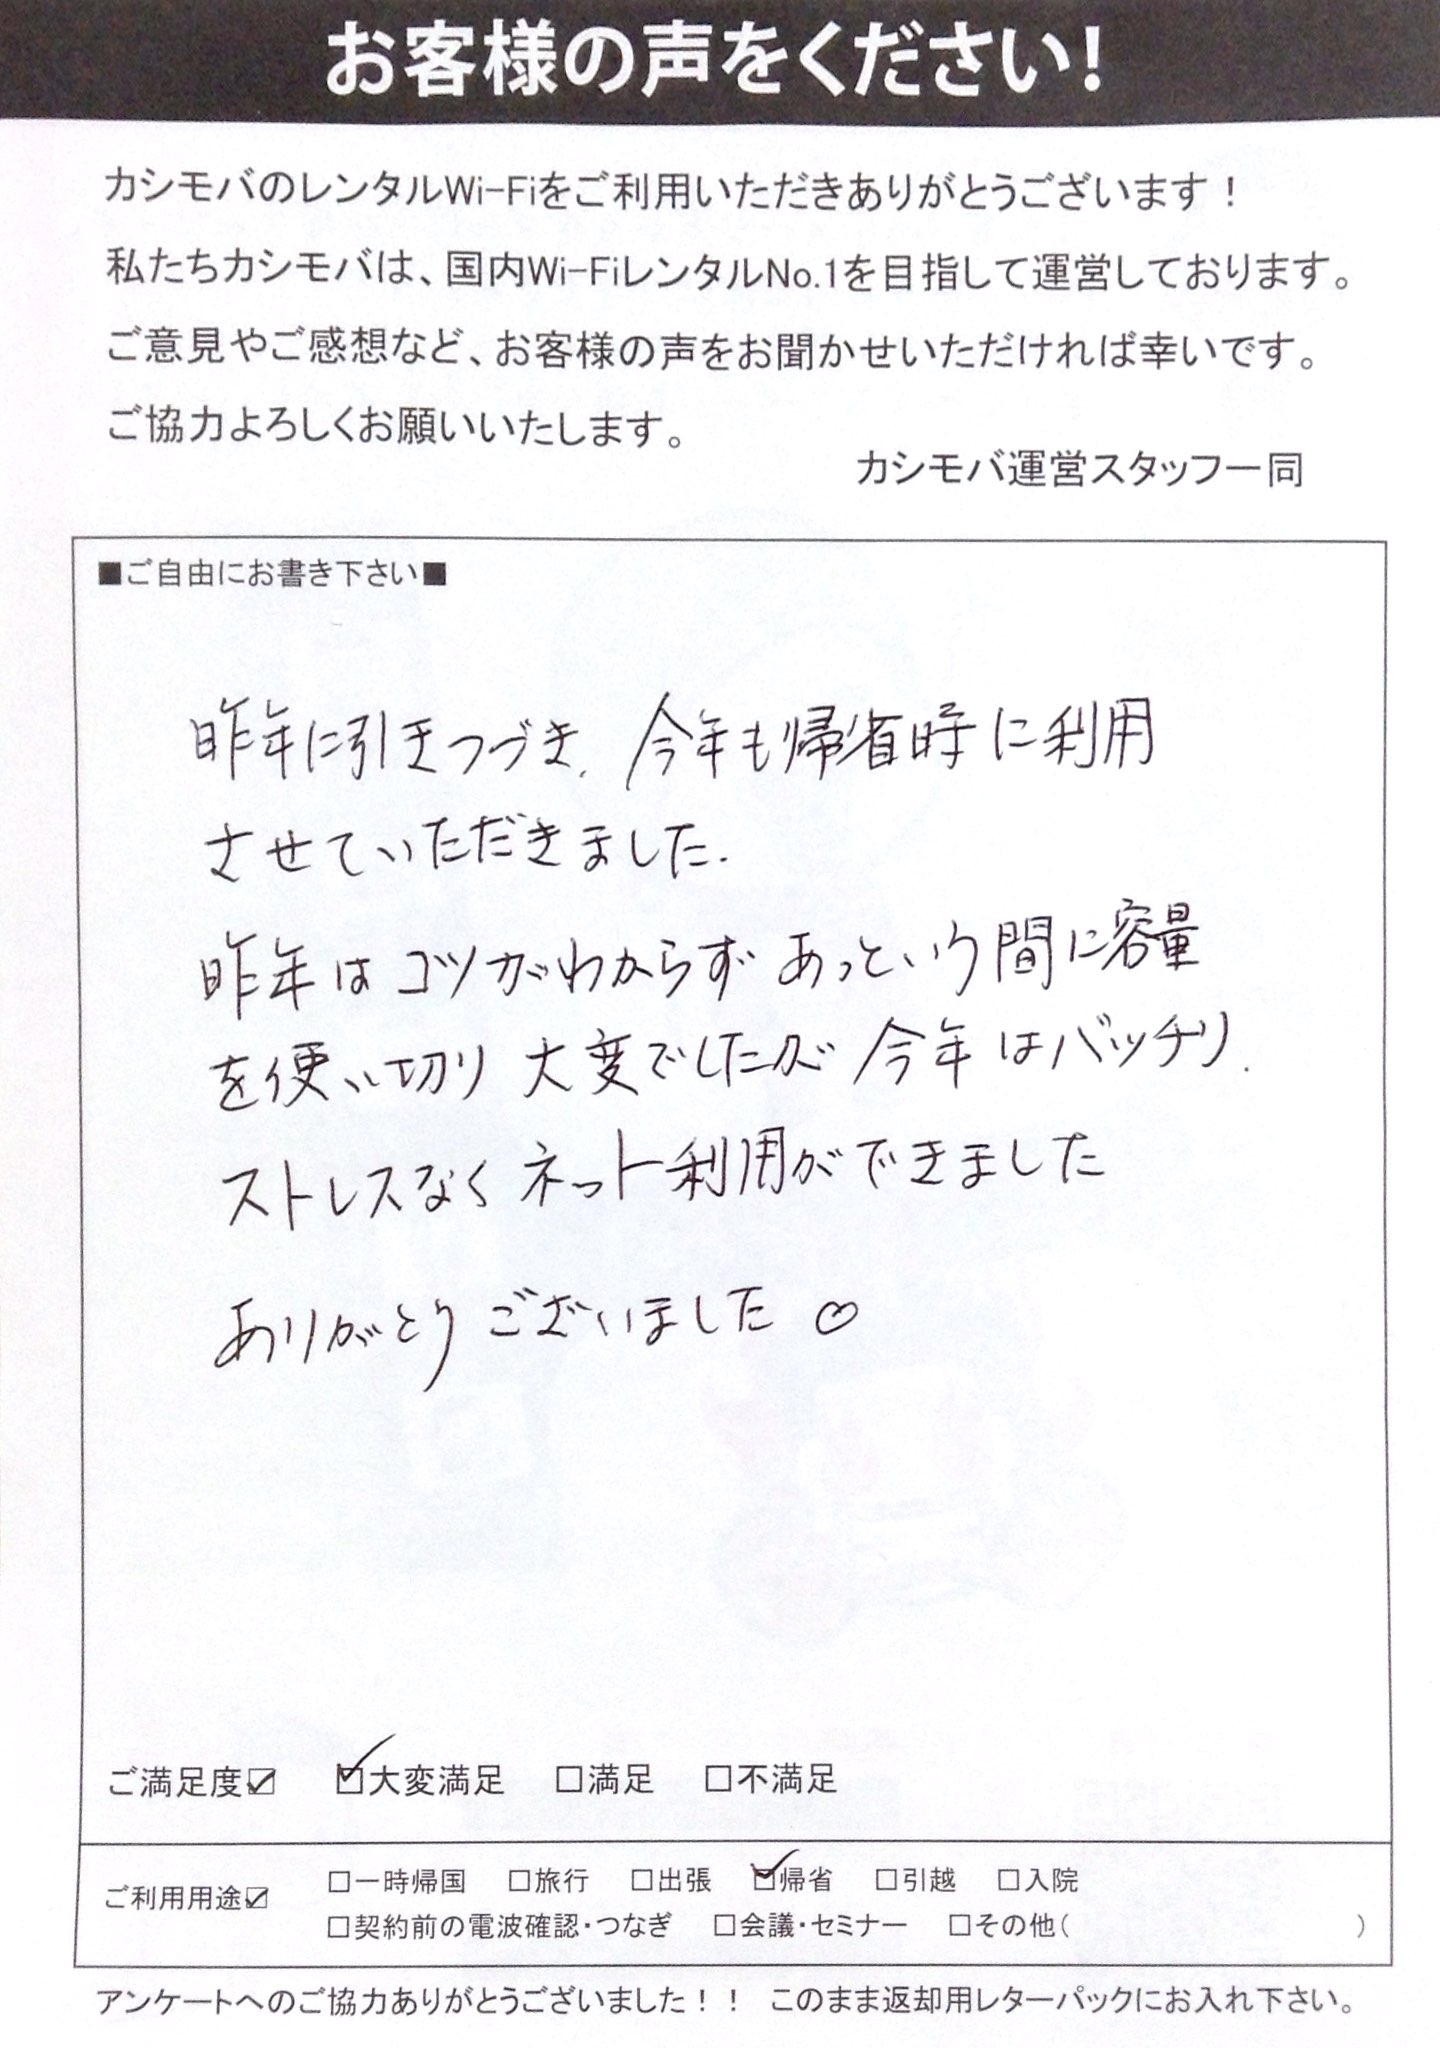 お客様の声をください!
カシモバのレンタルWi-Fiをご利用いただきありがとうございます！
私たちカシモバは、国内Wi-FiレンタルNo.1を目指して運営しております。
ご意見やご感想など、お客様の声をお聞かせいただければ幸いです。
ご協力よろしくお願いいたします。
カシモバ運営スタッフ一同
■ご自由にお書き下さい■
昨年に引きつづき、今年も帰省時に利用
させていただきました.
昨年はコツがわからず あっという間に容量
を使い切り 大変でしたが 今年はバッチリ.
ストレスなく ネット利用ができました
ありがとうございました ♡
ご満足度☑ ☑大変満足 □満足 □不満足
ご利用用途☑ □一時帰国 □旅行 □出張 ☑帰省 □引越 □入院
□契約前の電波確認・つなぎ □会議・セミナー □その他( )
アンケートへのご協力ありがとうございました！！ このまま返却用レターパックにお入れ下さい。